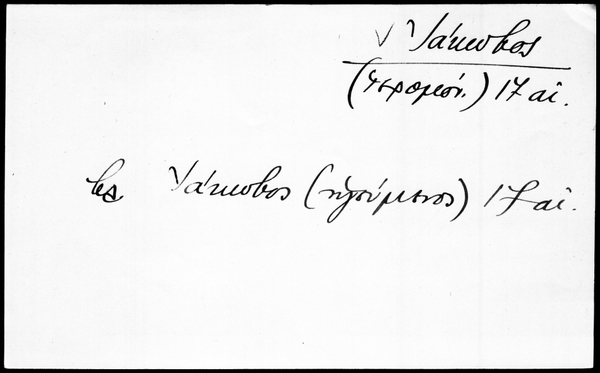 √ Ἰάκωβος
(ἱερομόν.) 17 αἰ.
βλ Ἰάκωβος (ἡγούμενος) 17 αἰ.